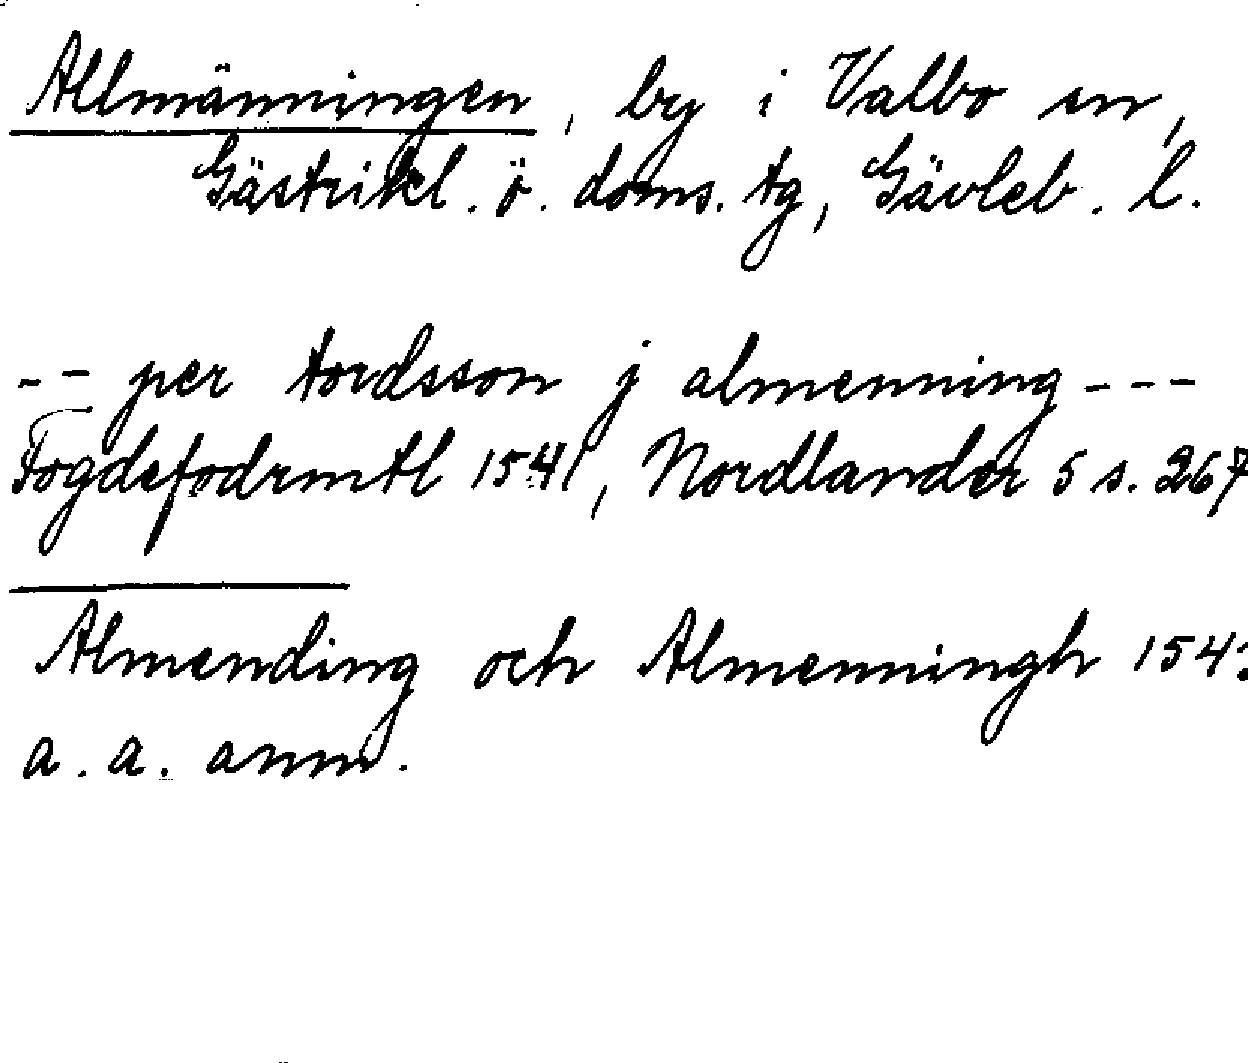 Allmänningen, by i Valbo sn,
Gästrikl. ö. doms. tg, Gävleb. l.
-- per tordsson j almenning ---
Fogdefodrmtl 1541, Nordlander 5 s. 267
Almending och Almenningh
a. a. anm.